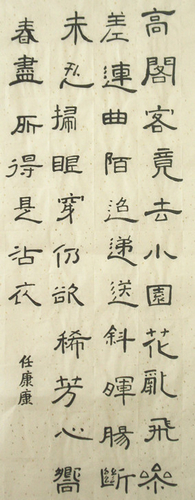 高閣客竟去小園花亂飛參
差連曲陌迢遞送斜暉腸斷
未忍掃眼穿仍欲稀芳心嚮
春盡所得是沾衣
任康康